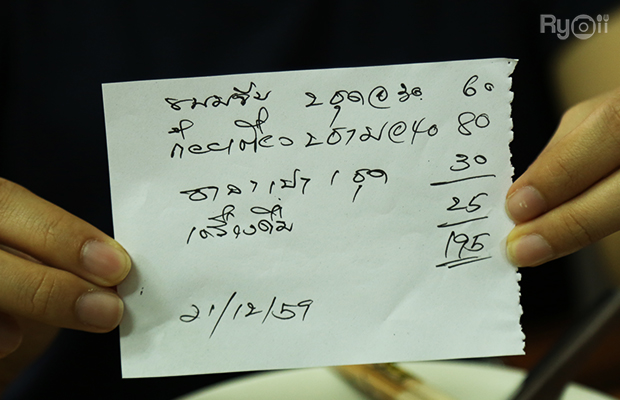 Ryoii
ขนมจีบ 2 ชุด@30 60
ก๋วยเตี๋ยว 2 ชาม@40 80
ซาลาเปา 1 ชุด 30
เครื่องดื่ม 25
195
21/12/59